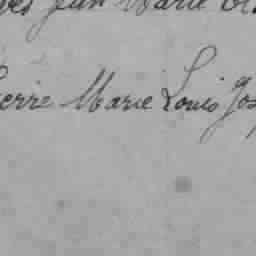 Jean Marie
Pierre Marie Louis Jos